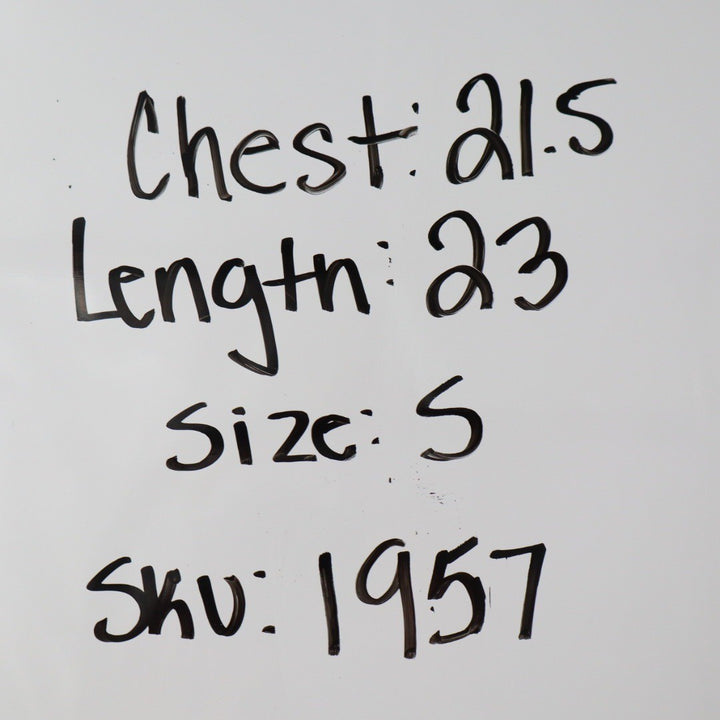 Chest: 21.5
Length: 23
Size: S
Sku: 1957